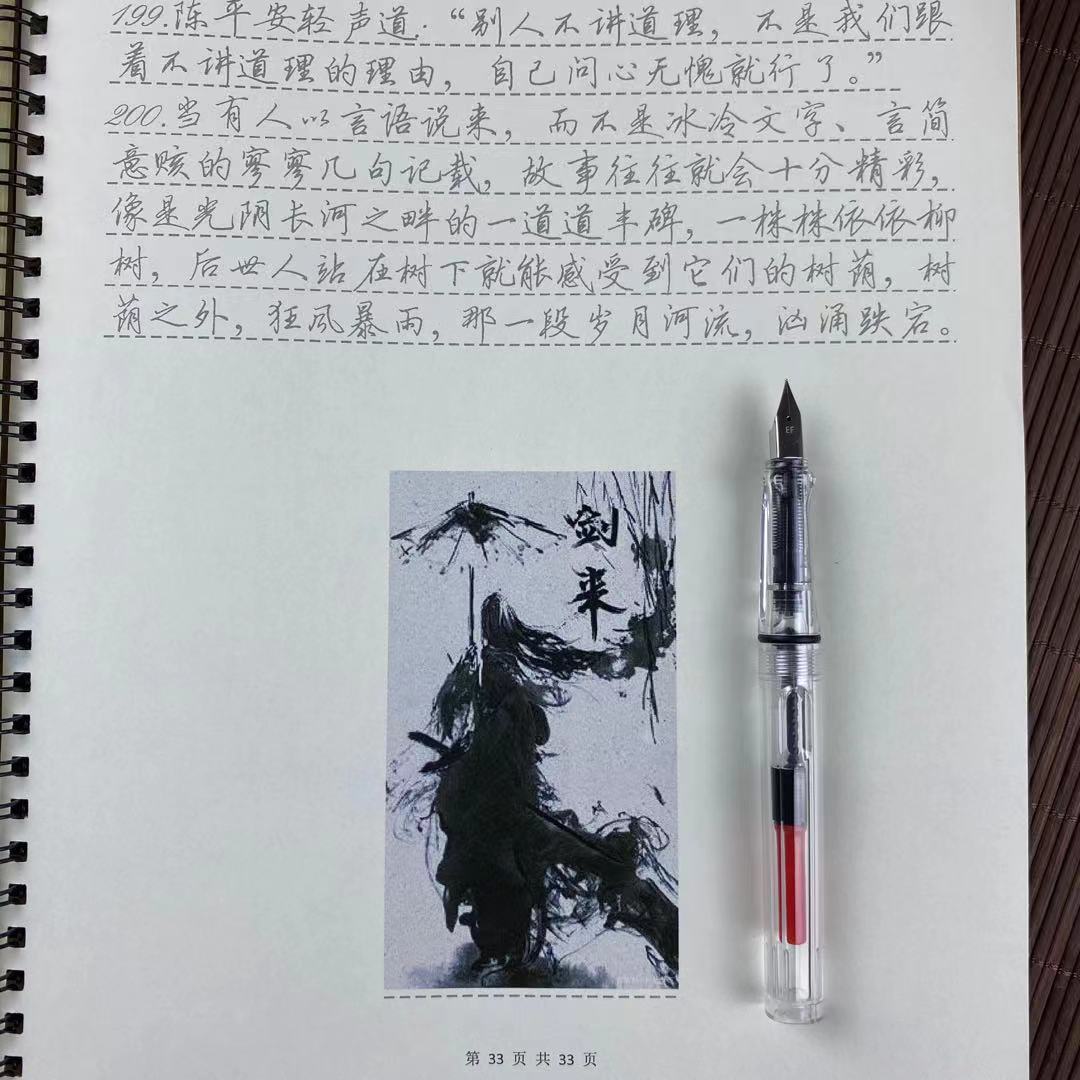 199.陈平安轻声道:“别人不讲道理，不是我们跟
着不讲道理的理由，自己问心无愧就行了。”
200.当有人以言语说来，而不是冰冷文字、言简
意赅的寥寥几句记载，故事往往就会十分精彩，
像是光阴长河之畔的一道道丰碑，一株株依依柳
树，后世人站在树下就能感受到它们的树荫，树
荫之外，狂风暴雨，那一段岁月河流，汹涌跌宕。
EF
剑
来
第 33 页 共 33 页